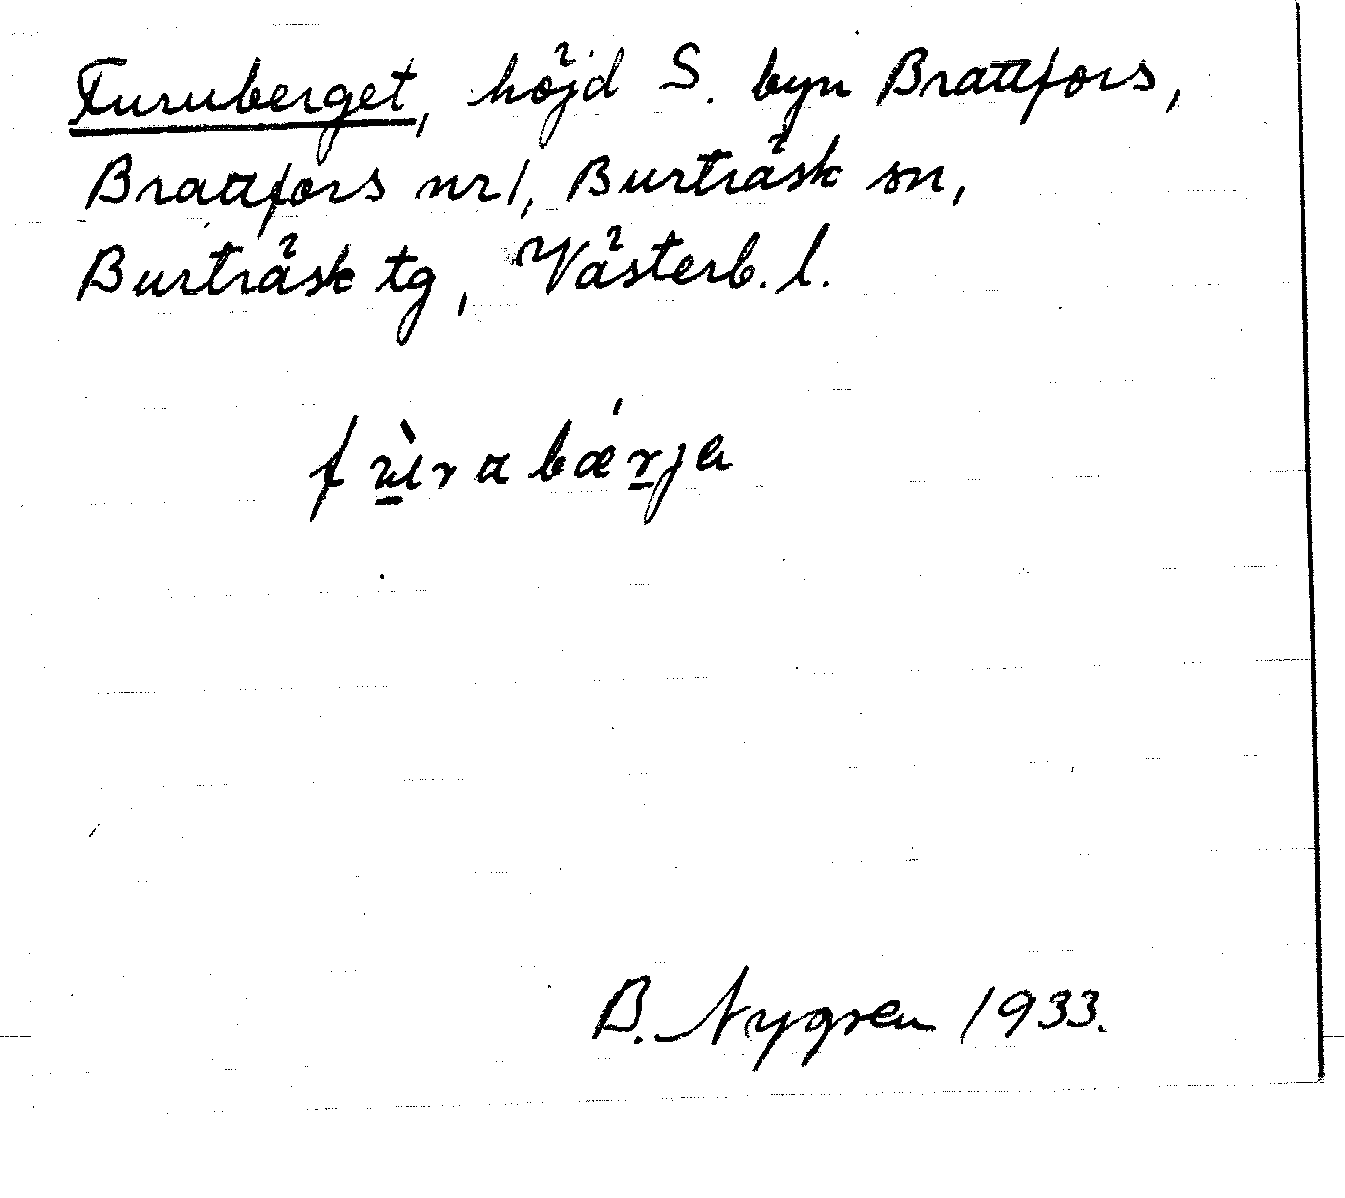 Furuberget, höjd S. byn Brattfors,
Brattfors nr 1, Burträsk sn,
Burträsk tg, Västerb. l.
fùrabǽrja
B. Nygren 1933.